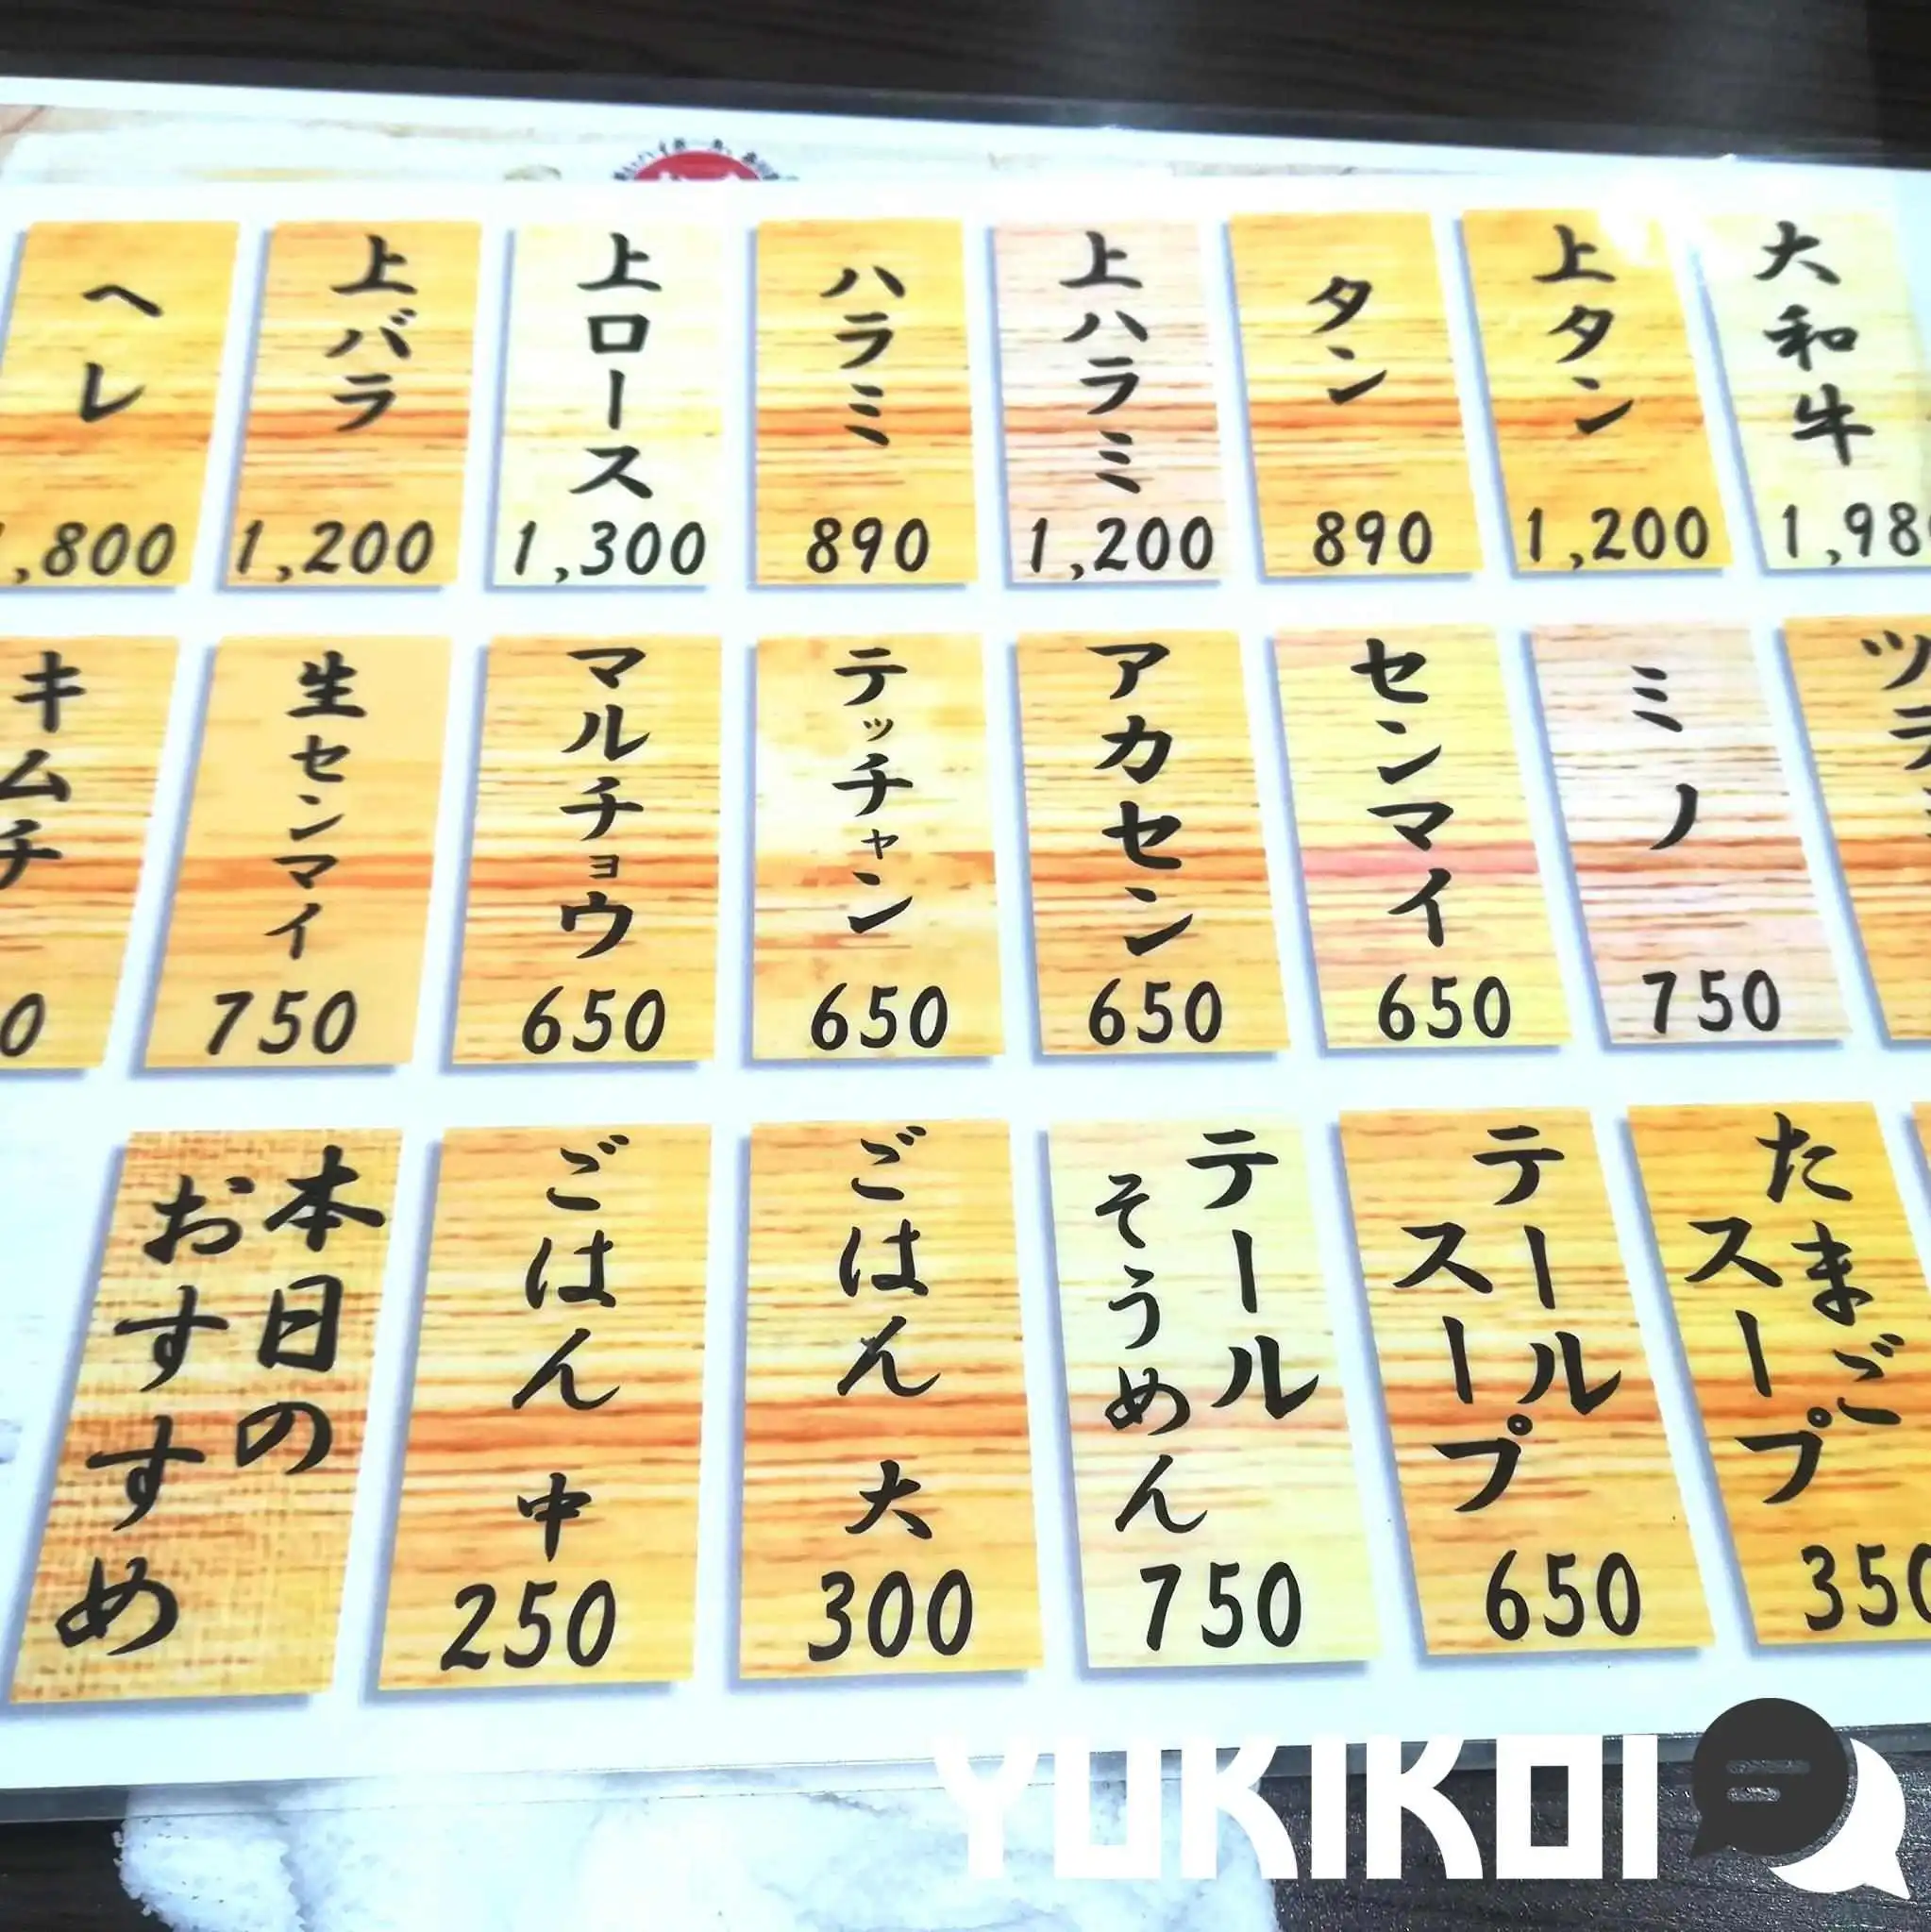 大和牛
1,98
上タン
1,200
タン
890
上ハラミ
1,200
ハラミ
890
上ロース
1,300
上バラ
1,200
ヘレ
,800
ミノ
750
センマイ
650
アカセン
650
テッチャン
650
マルチョウ
650
生センマイ
750
キムチ
0
たまご
スープ
350
テール
スープ
650
テール
そうめん
750
ごはん 大
300
ごはん 中
250
本日の
おすすめ
YUKIKOI